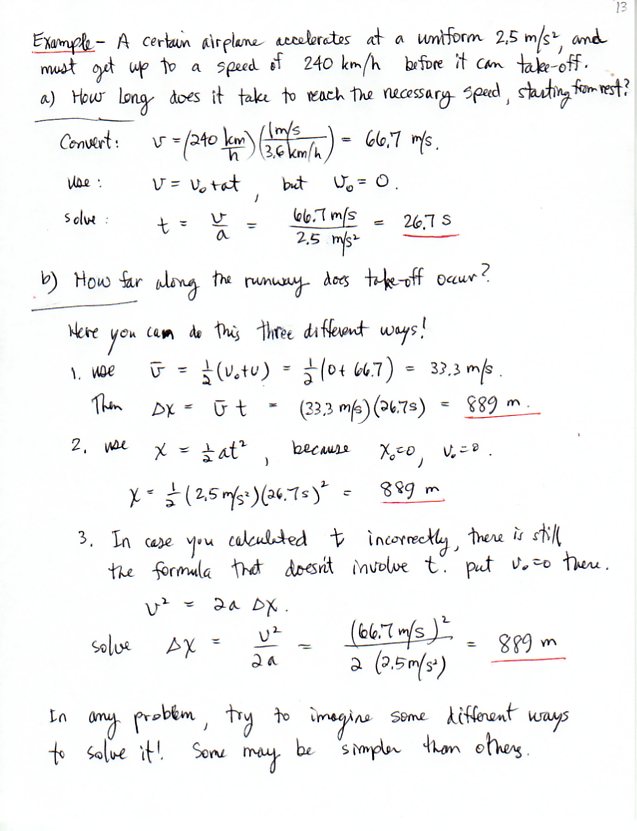 13
Example – A certain airplane accelerates at a uniform 2.5 m/s², and
must get up to a speed of 240 km/h before it can take-off.
a) How long does it take to reach the necessary speed, starting from rest?
Convert: v = (240 km/h)(1 m/s / 3.6 km/h) = 66.7 m/s.
use: v = v₀ + at, but v₀ = 0.
solve: t = v/a = 66.7 m/s / 2.5 m/s² = 26.7 s
b) How far along the runway does take-off occur?
Here you can do this three different ways!
1. use v̄ = ½(v₀+v) = ½(0+66.7) = 33.3 m/s.
Then Δx = v̄ t = (33.3 m/s)(26.7s) = 889 m.
2. use x = ½at², because x₀=0, v₀=0.
x = ½(2.5 m/s²)(26.7s)² = 889 m
3. In case you calculated t incorrectly, there is still
the formula that doesn't involve t. put v₀=0 there.
v² = 2a Δx.
solve Δx = v²/2a = (66.7 m/s)² / 2 (2.5 m/s²) = 889 m
In any problem, try to imagine some different ways
to solve it! Some may be simpler than others.